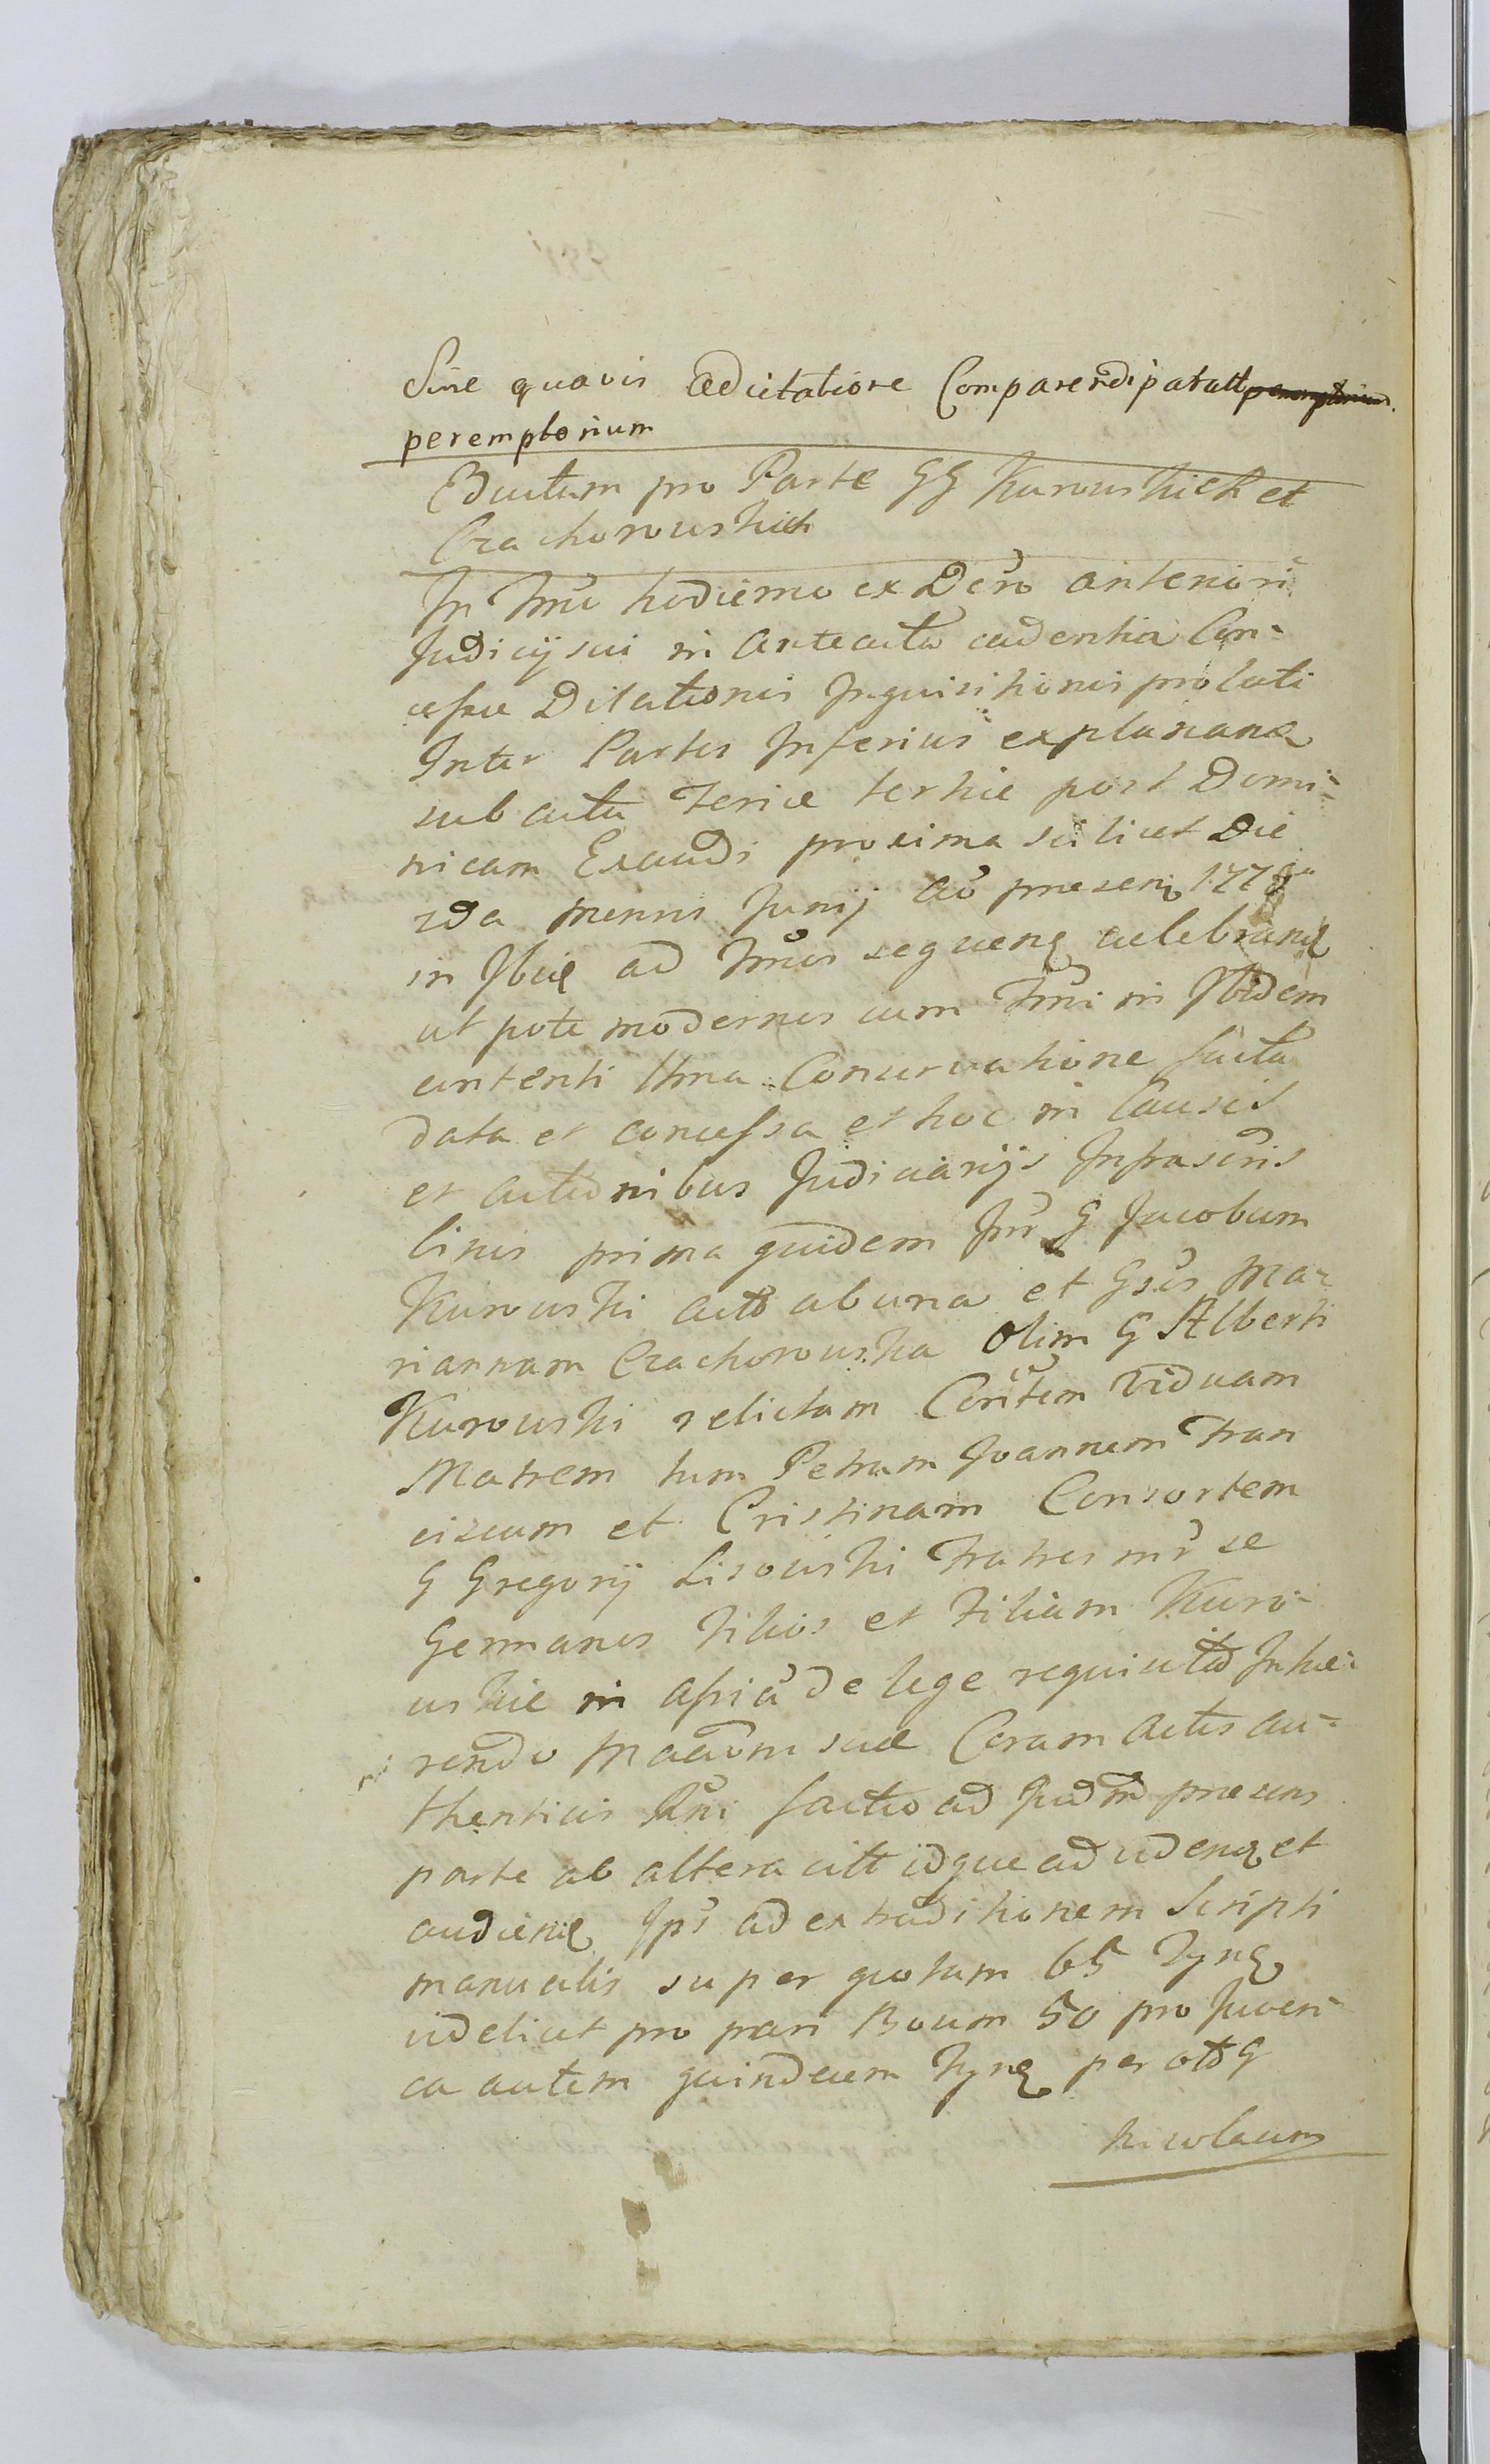 Sine quavis adcitatione Comparendi patall peremptorium
peremptorium
Edictum pro Parte GG Kurowskich et
Czachorowskich
In Tmo hodierno ex Decro anteriori
Judicÿ sui in anteacta cadentia Con-
cessae Dilationis Inquisitionis prolati
Inter Partes Inferius explanan
sub actu Feriae tertiae post Domi-
nicam Exaudi proxima scilicet Die
2da mensis Junÿ ao praesen 177
in Ibue ad Tmos sequen celebran
ut pote modernos cum Tmi in Ibidem
antenti Conservatione facta
data et concessa et hoc in Causis
et actionibus Judiciarÿs Infrascris
prima quidem Inr G Jacobum
Kurowski acto ab una et Gsos Ma-
riannam Czachorowska Olim G Alberti
Kurowski relictam Contem viduam
Matrem tum Petrum Joannem Fran
ciscum et Cristinam Consortem
G Gregorÿ Lisowski Fratres inr se
Germanos Filios et Filiam Kuro-
wskie in assia de lege requisita Inhae-
rendo suae Coram actis au-
thenticis factao ad Judm praesens
parte ab altera citt idque ad videnq et
audienq Ips ad extraditionem Scripti
manualis super quotam 65 Tynq
videlicet pro pari Boum 50 pro Juven
ca autem quindecim Tynq per G
Nicolaum